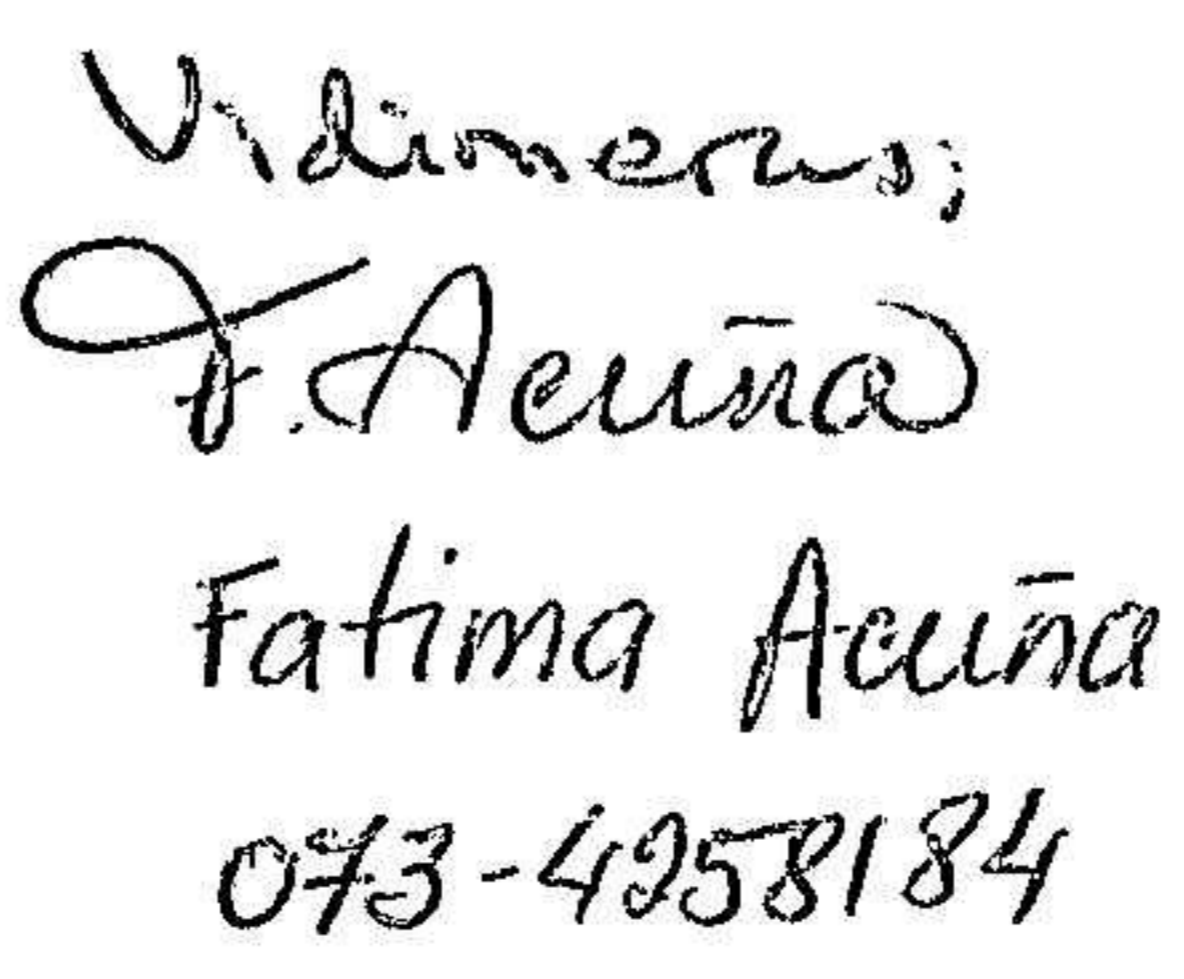 Vidimeras;
F. Acuña
Fatima Acuña
073-4258184